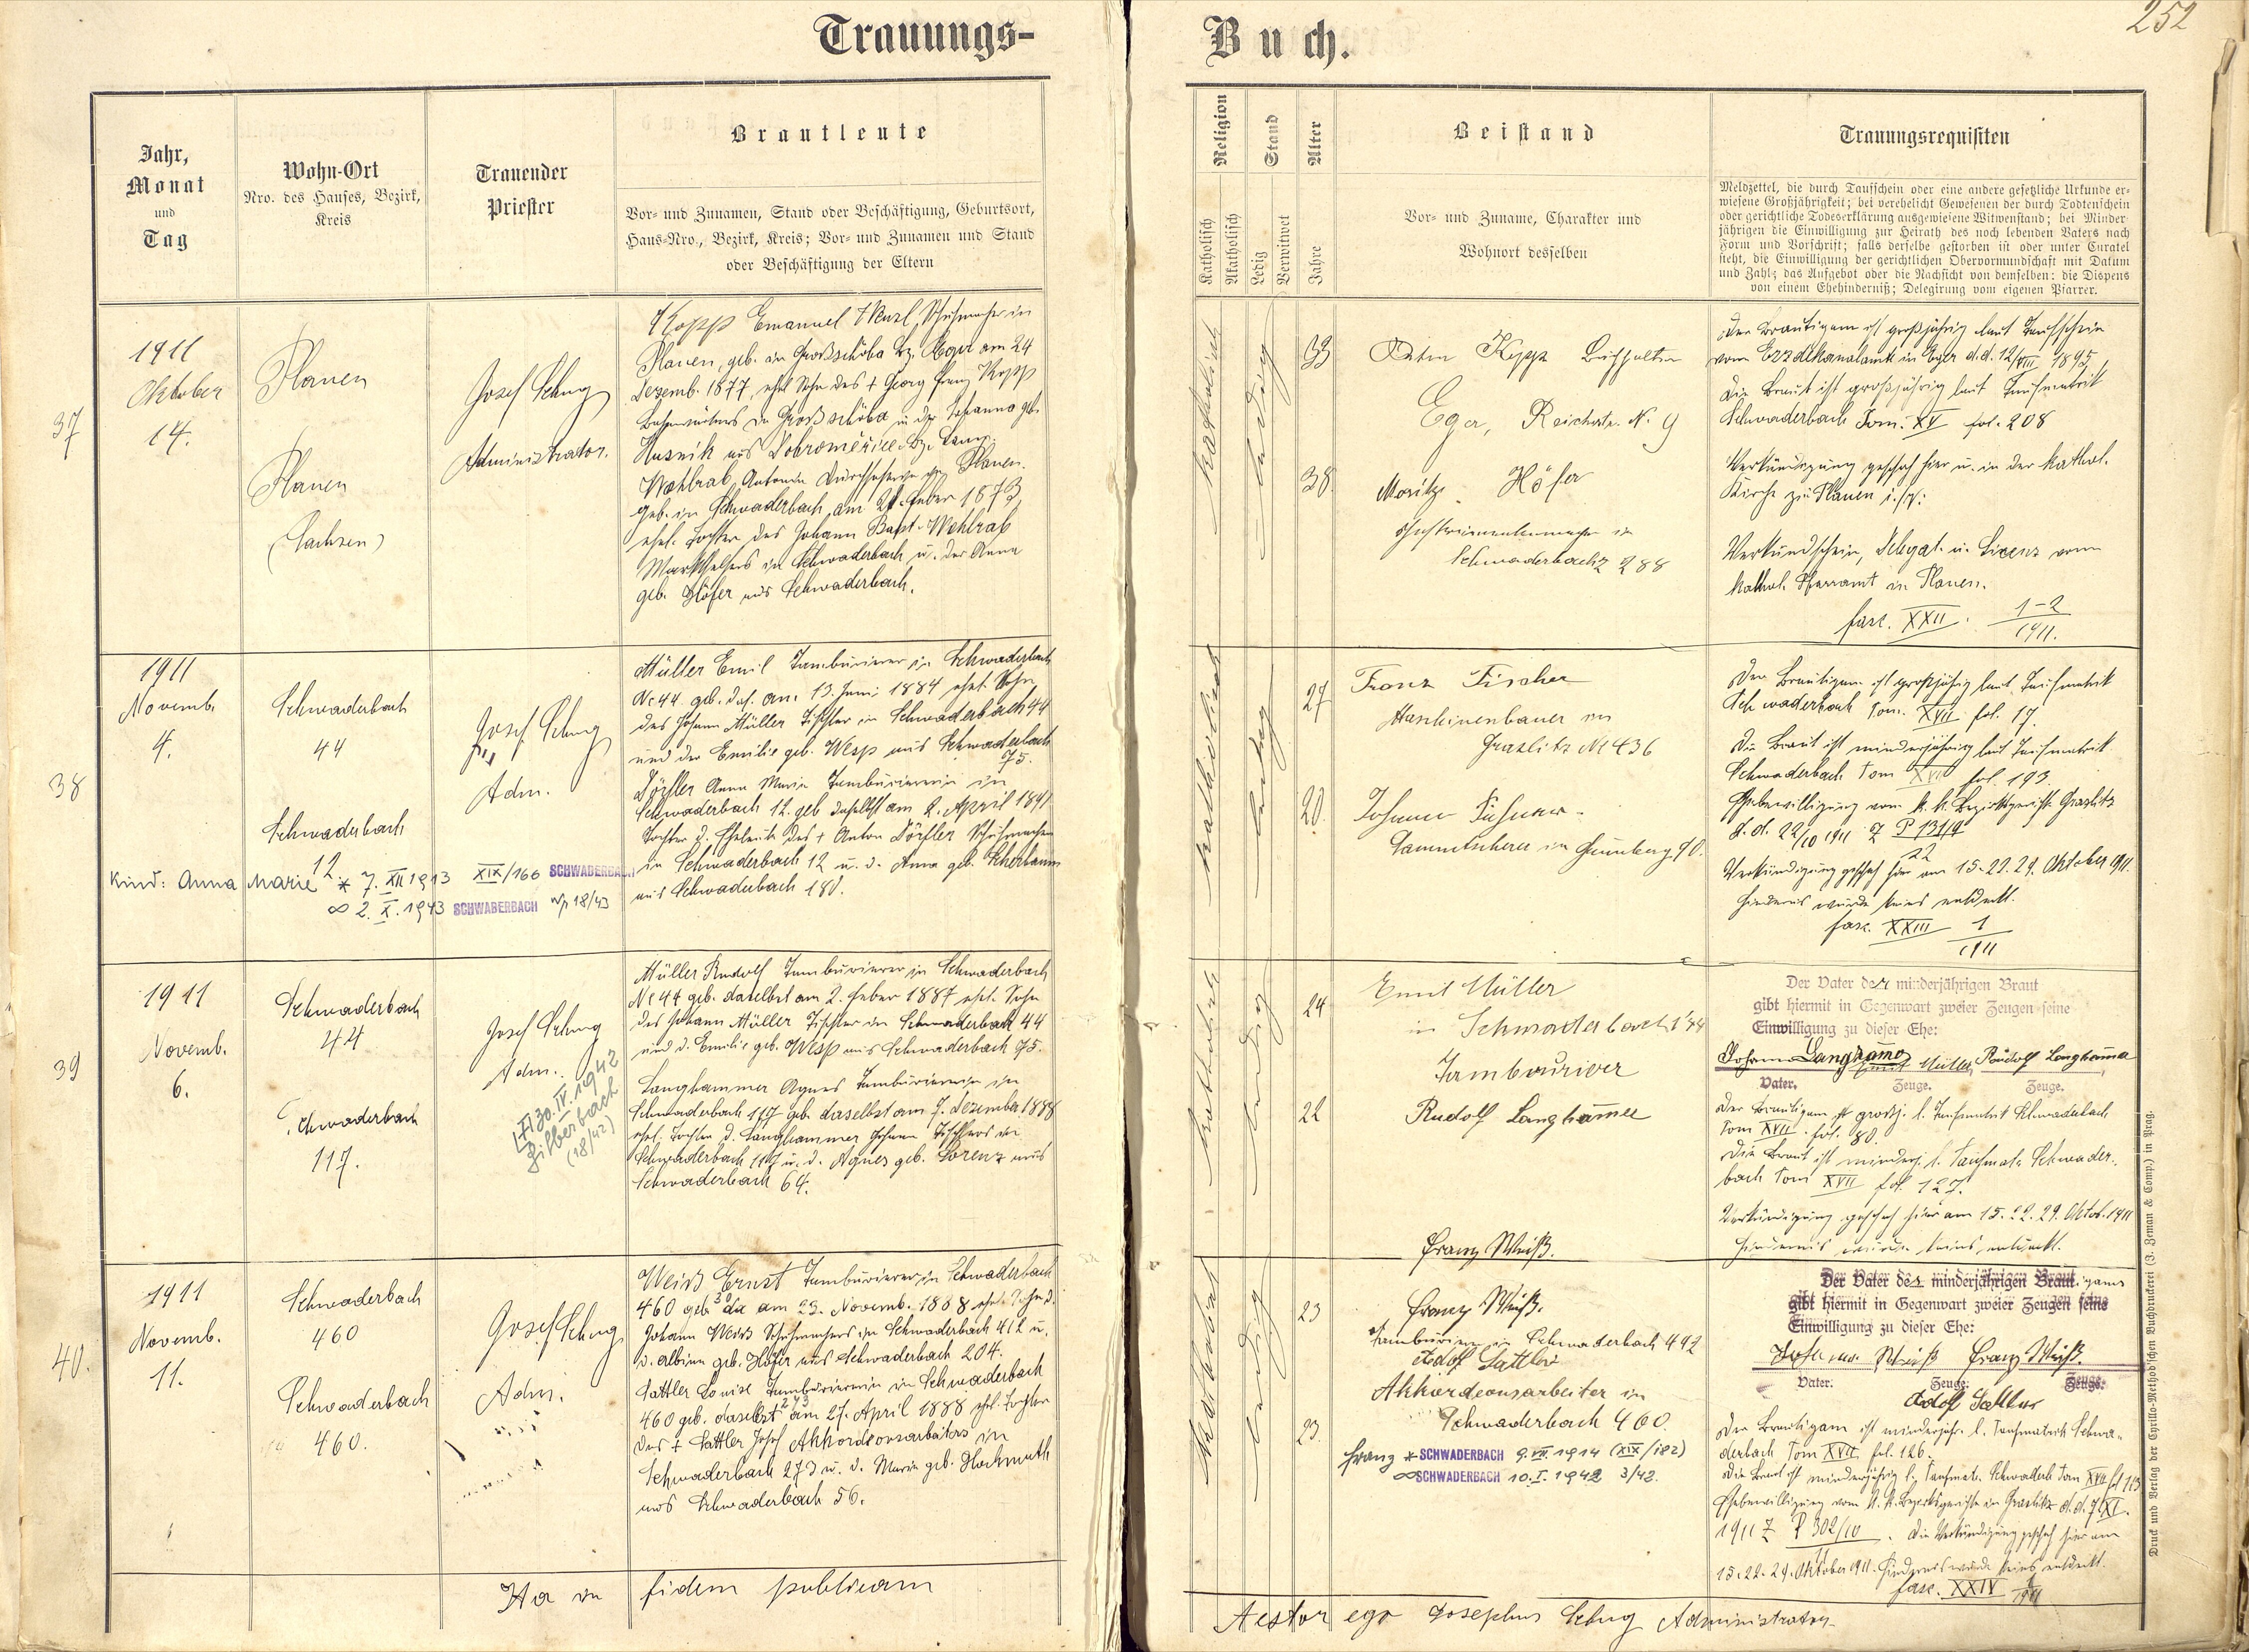 Trauungs-
Buch.
252
Jahr,
Monat
und
Tag
Wohn-Ort
Nro. des Hauses, Bezirk,
Kreis
Trauender
Priester
Brautleute
Vor- und Zunamen, Stand oder Beschäftigung, Geburtsort,
Haus-Nro., Bezirk, Kreis; Vor- und Zunamen und Stand
oder Beschäftigung der Eltern
Religion
Katholisch
Akatholisch
Stand
Ledig
Verwitwet
Alter
Jahre
Beistand
Vor- und Zuname, Charakter und
Wohnort desselben
Trauungsrequisiten
Meldzettel, die durch Taufschein oder eine andere gesetzliche Urkunde er-
wiesene Großjährigkeit; bei verehelicht Gewesenen der durch Todtenschein
oder gerichtliche Todeserklärung ausgewiesene Witwenstand; bei Minder
jährigen die Einwilligung zur Heirath des noch lebenden Vaters nach
Form und Vorschrift; falls derselbe gestorben ist oder unter Curatel
steht, die Einwilligung der gerichtlichen Obervormundschaft mit Datum
und Zahl; das Aufgebot oder die Nachsicht von demselben: die Dispens
von einem Ehehinderniß; Delegirung vom eigenen Pfarrer.
37
1911
Oktober
14.
Plauen
Plauen
(Sachsen)
Josef Schug
Administrator.
Kopp Emanuel Wenzl, Schuhmacher in
Plauen, geb. in Großschüba Bz. Eger am 24
Dezemb. 1877, ehel. Sohn des + Georg Franz Kopp
in Großschüba u. der Johanna gb.
Husnik aus Dobroměřice Bz. Laun.
Wohlrab Antonia in Plauen.
geb. in Schwaderbach am 21. Feber 1873,
ehel. Tochter des Johann Bapt. Wohlrab
in Schwaderbach u. der Anna
geb. Höfer aus Schwaderbach.
katholisch
ledig
33
Anton Kopp Buchhalter
Eger, Reichsstr. N. 9
38
Moritz Höfer
in
Schwaderbach 288
Der Bräutigam ist großjährig laut Taufschein
vom Erzdekanalamte in Eger d.d. 12/VIII 1895
Die Braut ist großjährig laut Taufmatrik
Schwaderbach Tom. XV fol. 208
Verkündigung geschah hier u. in der kathol.
Kirche zu Plauen i./V.:
Verkündschein, Delegat. u. Lizenz vom
kathol. Pfarramt in Plauen.
fasc. XXII. 1-2
1911.
38
1911
Novemb.
4.
Schwaderbach
44
Schwaderbach
12.
Josef Schug
Adm.
Müller Emil Tambourierer in Schwaderbach
No 44 geb. das. am 13. Juni 1884 ehel. Sohn
des Johann Müller Tischler in Schwaderbach 44
und der Emilie geb. Wesp aus Schwaderbach
75.
Dörfler Anna Maria Tambouriererin in
Schwaderbach 12. geb. daselbst am 2. April 1891
Tochter d. Eheleute des + Anton Dörfler Schuhmacher
in Schwaderbach 12 u. d. Anna geb.
aus Schwaderbach 180.
Kind: Anna Marie * 7. XII 1913 XIX/166 SCHWADERBACH
∞ 2. X. 1943 SCHWADERBACH 18/43
katholisch
ledig
27
Franz Fischer
Maschinenbauer in
Graslitz No 436
20.
Johann
in Grünberg 90.
Der Bräutigam ist großjährig laut Taufmatrik
Schwaderbach Tom. XVII fol. 17.
Die Braut ist minderjährig laut Taufmatrik
Schwaderbach Tom XVII fol. 193
Ehebewilligung vom k. k. Bezirksgericht Graslitz
d. d. 22/10 1911 Z P 131/9
22
Verkündigung geschah hier am 15. 22. 29. Oktober 1911.
Hindernis wurde keines entdeckt.
fasc. XXIII 1
1911
39
1911
Novemb.
6.
Schwaderbach
44
Schwaderbach
117.
Josef Schug
Adm.
30. IV. 1942
Silberbach
(18/42)
Müller Rudolf Tambourierer in Schwaderbach
No 44 geb. daselbst am 2. Feber 1887 ehel. Sohn
des Johann Müller Tischler in Schwaderbach 44
und d. Emilie geb. Wesp aus Schwaderbach 75.
Langhammer Agnes Tambouriererin in
Schwaderbach 117 geb. daselbst am 7. Dezember 1888
ehel. Tochter d. Langhammer Johann Tischlers in
Schwaderbach 117 u. d. Agnes geb. Lorenz aus
Schwaderbach 64.
katholisch
ledig
24
Emil Müller
in Schwaderbach 44
Tambourirer
22
Rudolf Langhammer
Der Vater der minderjährigen Braut
gibt hiermit in Gegenwart zweier Zeugen seine
Einwilligung zu dieser Ehe:
Johann Langhammer Emil Müller Rudolf Langhammer
Vater. Zeuge. Zeuge.
Der Bräutigam ist großj. l. Taufmatrik Schwaderbach
Tom XVII. fol. 80.
Die Braut ist minderj. l. Taufmat. Schwader-
bach Tom XVII fol. 127.
Verkündigung geschah hier am 15. 22. 29. Oktob. 1911
Hindernis wurde keines entdeckt.
Franz Weiß.
40.
1911
Novemb.
11.
Schwaderbach
460
Schwaderbach
460.
Josef Schug
Adm.
Weiss Ernst Tambourierer in Schwaderbach
460 geb. da am 23. Novemb. 1888 ehel. Sohn d.
Johann Weiss Schuhmachers in Schwaderbach 412 u.
d. Albina geb. Höfer aus Schwaderbach 204.
Sattler Louise Tambouriererin in Schwaderbach
460 geb. daselbst 273 am 27. April 1888 ehel. Tochter
des + Sattler Josef Akkordeonsarbeiters in
Schwaderbach 273 u. d. Maria geb. Hochmuth
aus Schwaderbach 56.
katholisch
ledig
23
Franz Weiß.
Tambourirer in Schwaderbach 492
Adolf Sattler
Akkordeonsarbeiter in
Schwaderbach 460.
23.
Franz * SCHWADERBACH 9. VII. 1914 (XIX/182)
∞ SCHWADERBACH 10. I. 1942 3/42.
Der Vater des minderjährigen Braut.igams
gibt hiermit in Gegenwart zweier Zeugen seine
Einwilligung zu dieser Ehe:
Johann Weiß Franz Weiß.
Vater. Zeuge. Zeuge.
Adolf Sattler
Der Bräutigam ist minderjähr. l. Taufmatrik Schwa-
derbach Tom XVII fol. 126.
Die Braut ist minderjährig l. Taufmatr. Schwaderb. Tom XVII fol 113
Ehebewilligung vom k. k. Bezirksgerichte in Graslitz d. d. 7/XI.
1911 Z P 302/10. Die Verkündigung geschah hier am
11
15. 22. 29. Oktober 1911. Hindernis wurde keines entdeckt.
fasc. XXIV 1
1911
Ita in fidem publicam
Testor ego Josephus Schug Administrator
Druck und Verlag der Cyrillo-Method'schen Buchdruckerei (J. Zeman & Comp.) in Prag.